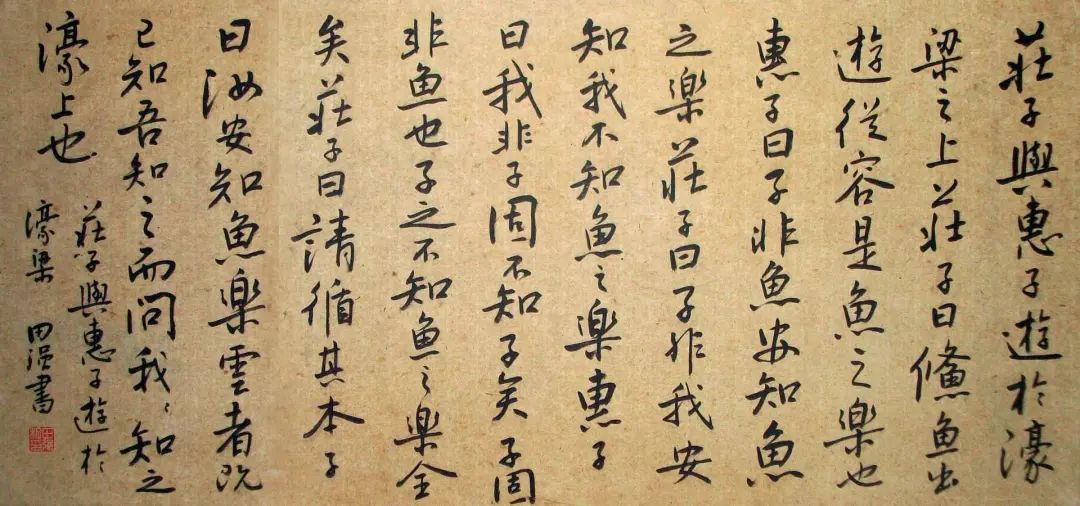 莊子與惠子遊於濠
梁之上莊子曰鯈魚出
遊從容是魚之樂也
惠子曰子非魚安知魚
之樂莊子曰子非我安
知我不知魚之樂惠子
曰我非子固不知子矣子固
非魚也子之不知魚之樂全
矣莊子曰請循其本子
曰汝安知魚樂雲者既
已知吾知之而問我〻知之
濠上也
莊子與惠子遊於
濠梁 田書